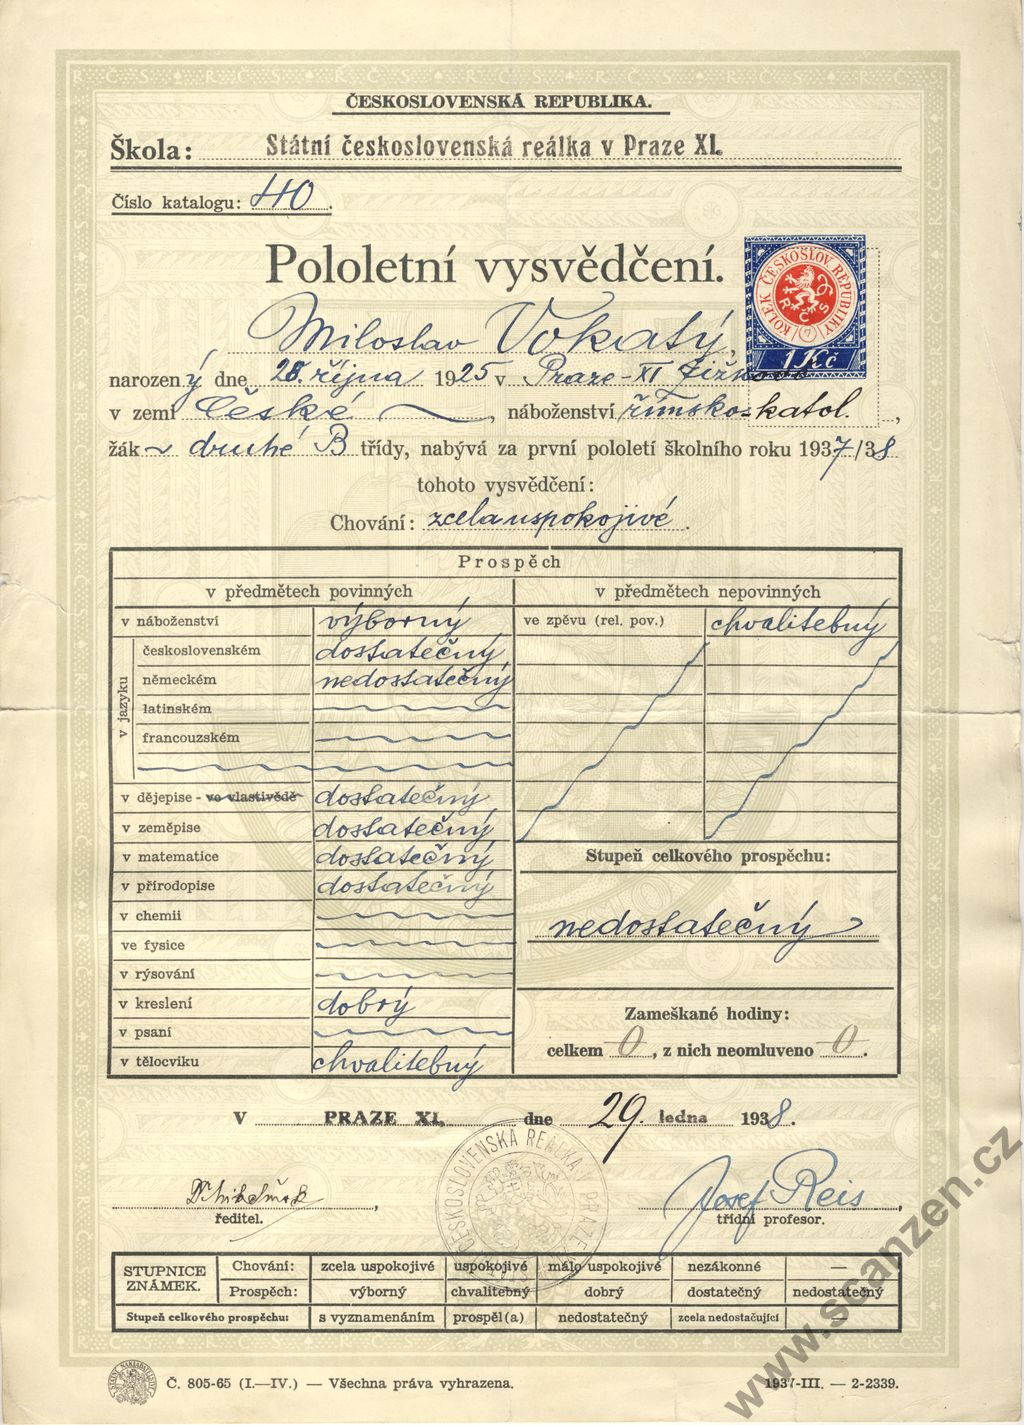 ČESKOSLOVENSKÁ REPUBLIKA.
Škola: Státní československá reálka v Praze XI.
Číslo katalogu: 40.
Pololetní vysvědčení.
KOLEK ČESKOSLOV. REPUBLIKY
R Č S
1 Kč
Miloslav Vokatý,
narozený dne 28. října 1925 v Praze-XI Žižkově
v zemi České, náboženství římskokatol.,
žák druhé B třídy, nabývá za první pololetí školního roku 1937/38
tohoto vysvědčení:
Chování: zcela uspokojivé.
Prospěch
v předmětech povinných v předmětech nepovinných
v náboženství výborný ve zpěvu (rel. pov.) chvalitebný
v jazyku
československém dostatečný
německém nedostatečný
latinském
francouzském
v dějepise - ve vlastivědě dostatečný
v zeměpise dostatečný
v matematice dostatečný
v přírodopise dostatečný
v chemii
ve fysice
v rýsování
v kreslení dobrý
v psaní
v tělocviku chvalitebný
Stupeň celkového prospěchu:
nedostatečný
Zameškané hodiny:
celkem 0, z nich neomluveno 0.
V PRAZE XI. dne 29. ledna 1938.
ČESKOSLOVENSKÁ REÁLKA V PRAZE
ředitel.
Josef Reis
třídní profesor.
STUPNICE ZNÁMEK. Chování: zcela uspokojivé uspokojivé málo uspokojivé nezákonné —
Prospěch: výborný chvalitebný dobrý dostatečný nedostatečný
Stupeň celkového prospěchu: s vyznamenáním prospěl(a) nedostatečný zcela nedostačující
Č. 805-65 (I.—IV.) — Všechna práva vyhrazena. 1937-III. — 2-2339.
www.scanzen.cz